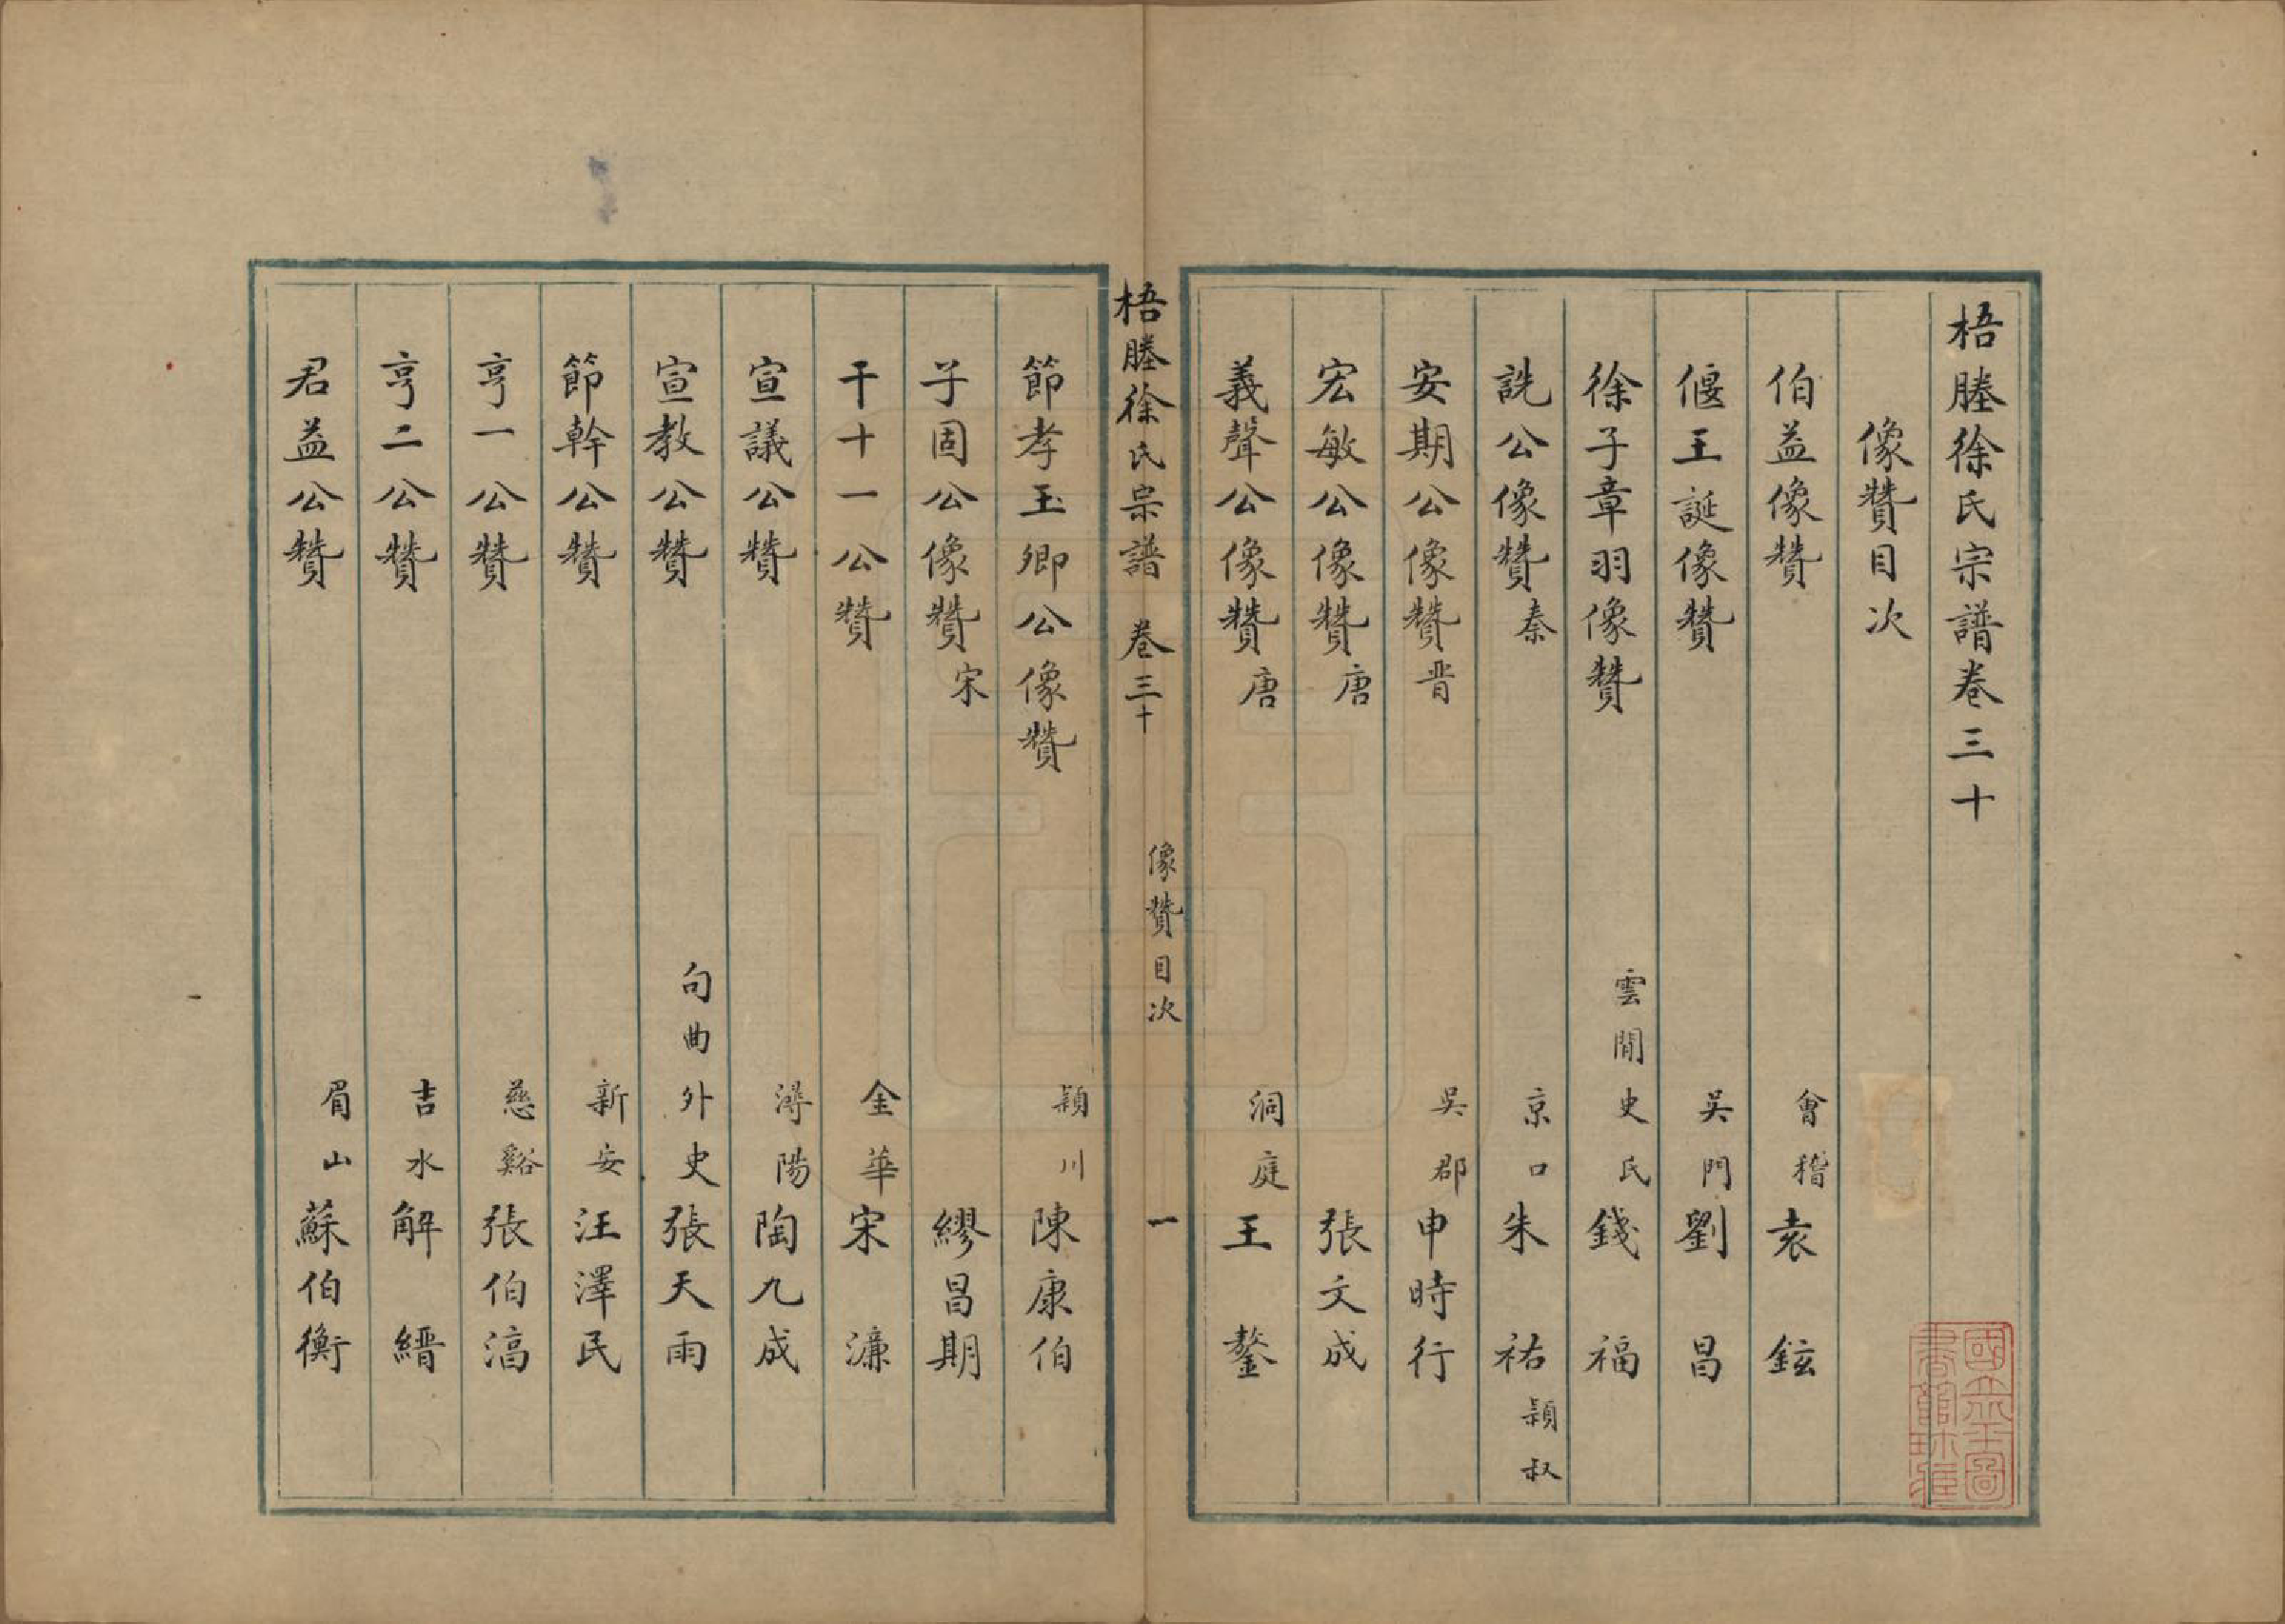 梧塍徐氏宗譜卷三十
像贊目次
伯益像贊 會稽袁鉉
偃王誕像贊 吳門劉昌
徐子章羽像贊 雲間史氏錢福
詵公像贊秦 京口朱祐穎叔
安期公像贊晋 吳郡申時行
宏敏公像贊唐 張文成
義聲公像贊唐 洞庭王鏊
梧塍徐氏宗譜 卷三十 像贊目次 一
節孝玉卿公像贊 穎川陳康伯
子固公像贊宋 繆昌期
千十一公贊 金華宋濂
宣議公贊 潯陽陶九成
宣教公贊 句曲外史張天雨
節幹公贊 新安汪澤民
亨一公贊 慈谿張伯濇
亨二公贊 吉水解縉
君益公贊 眉山蘇伯衡
國立北平圖書館珍藏